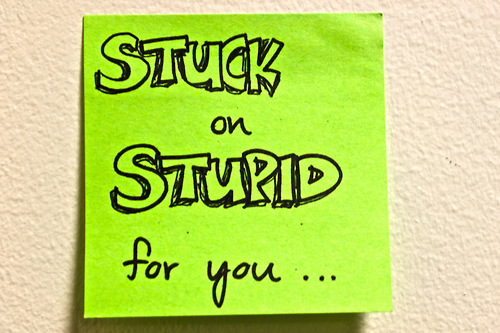 STUCK
on
STUPID
for you ...